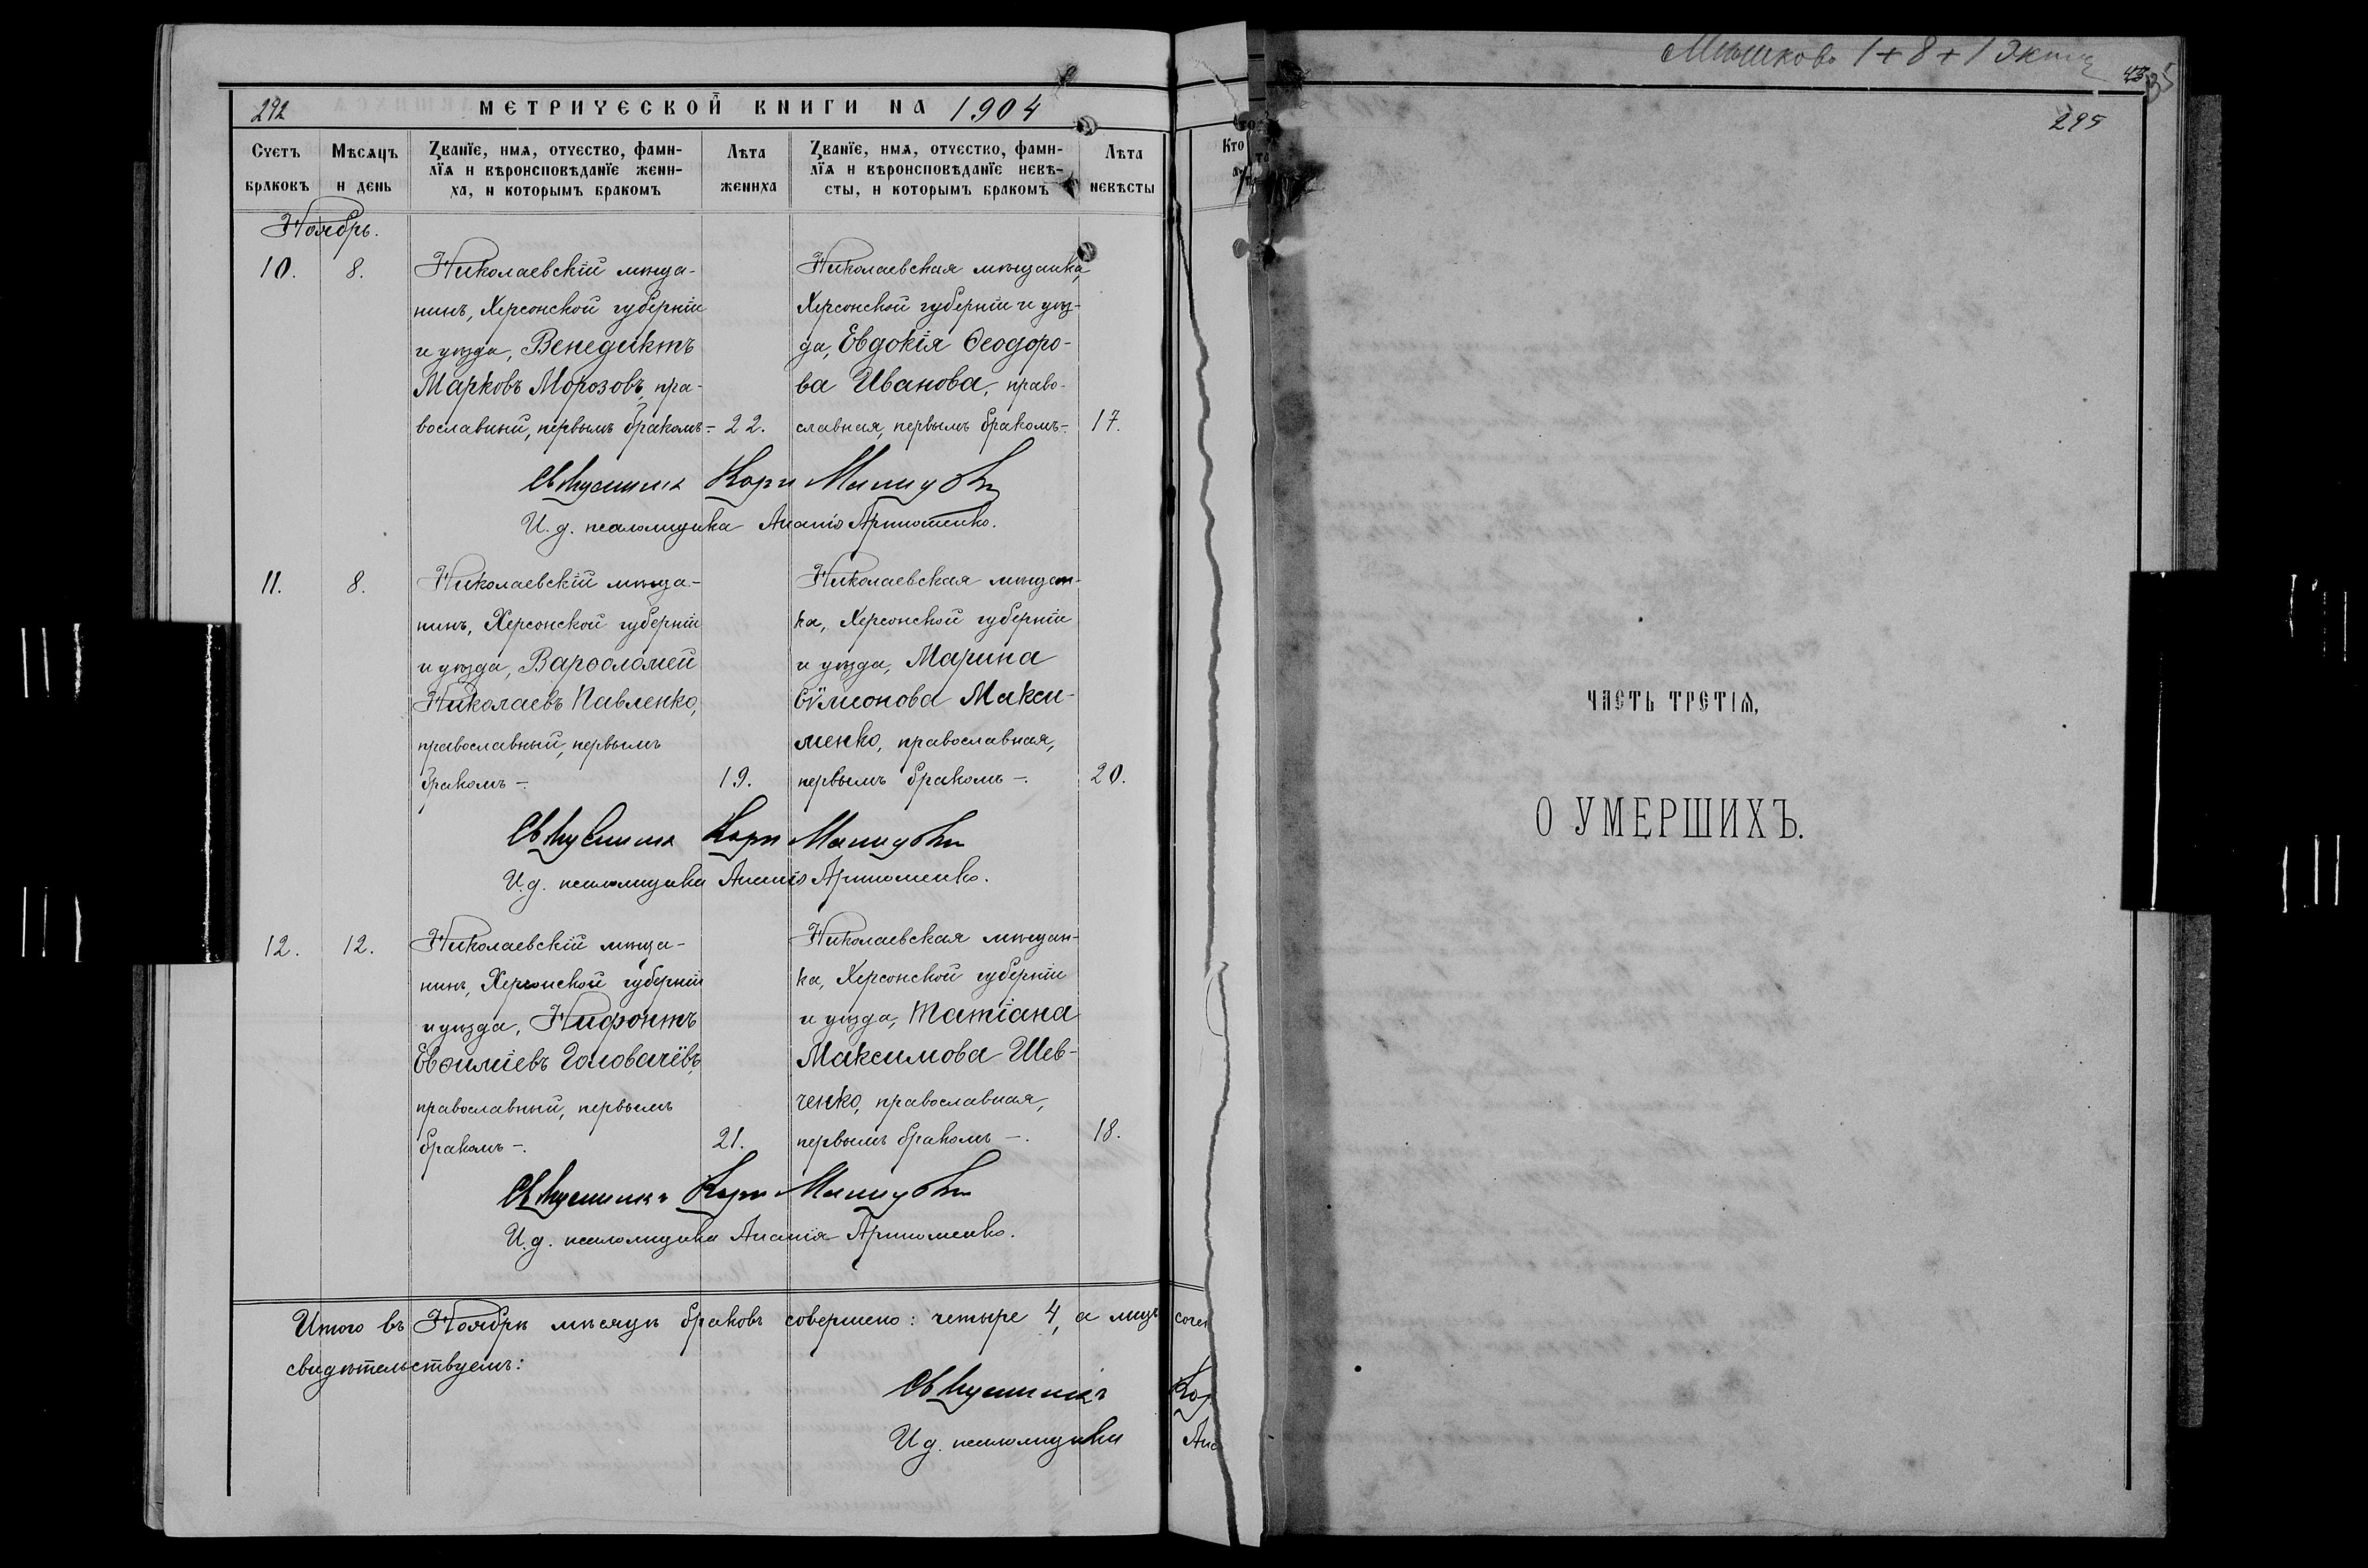 292
МЕТРИЧЕСКОЙ КНИГИ НА 1904
Счетъ браковъ
Мѣсяцъ и день
Званіе, имя, отчество, фами-
лія и вѣроисповѣданіе жени-
ха, и которымъ бракомъ
Лѣта жениха
Званіе, имя, отчество, фами-
лія и вѣроисповѣданіе невѣ-
сты, и которымъ бракомъ
Лѣта невѣсты
Кто
Ноябрь.
10. 8.
Николаевскій мѣща-
нинъ, Херсонской губерніи
и уѣзда, Венедиктъ
Марковъ Морозовъ, пра-
вославный, первымъ бракомъ –. 22.
Николаевская мѣщанка,
Херсонской губерніи и уѣз-
да, Евдокія Ѳеодоро-
ва Иванова, право-
славная, первымъ бракомъ –. 17.
И. д. псаломщика Ананія
11. 8.
Николаевскій мѣща-
нинъ, Херсонской губерніи
и уѣзда, Варѳоломей
Николаевъ Павленко,
православный, первымъ
бракомъ –. 19.
Николаевская мѣщан-
ка, Херсонской губерніи
и уѣзда, Марина
Сѵмеонова Макси-
менко, православная,
первымъ бракомъ –. 20.
И. д. псаломщика Ананія
12. 12.
Николаевскій мѣща-
нинъ, Херсонской губерніи
и уѣзда, Нифонтъ
Евѳиміевъ Головачёвъ,
православный, первымъ
бракомъ –. 21.
Николаевская мѣщан-
ка, Херсонской губерніи
и уѣзда, Татіана
Максимова Шев-
ченко, православная,
первымъ бракомъ –. 18.
И. д. псаломщика Ананія
Итого въ Ноябрѣ мѣсяцѣ браковъ совершено: четыре 4, а лицъ соче
свидѣтельствуемъ:
И д. псаломщика Ана
1 + 8 + 1
295
ЧАСТЬ ТРЕТІЯ,
О УМЕРШИХЪ.